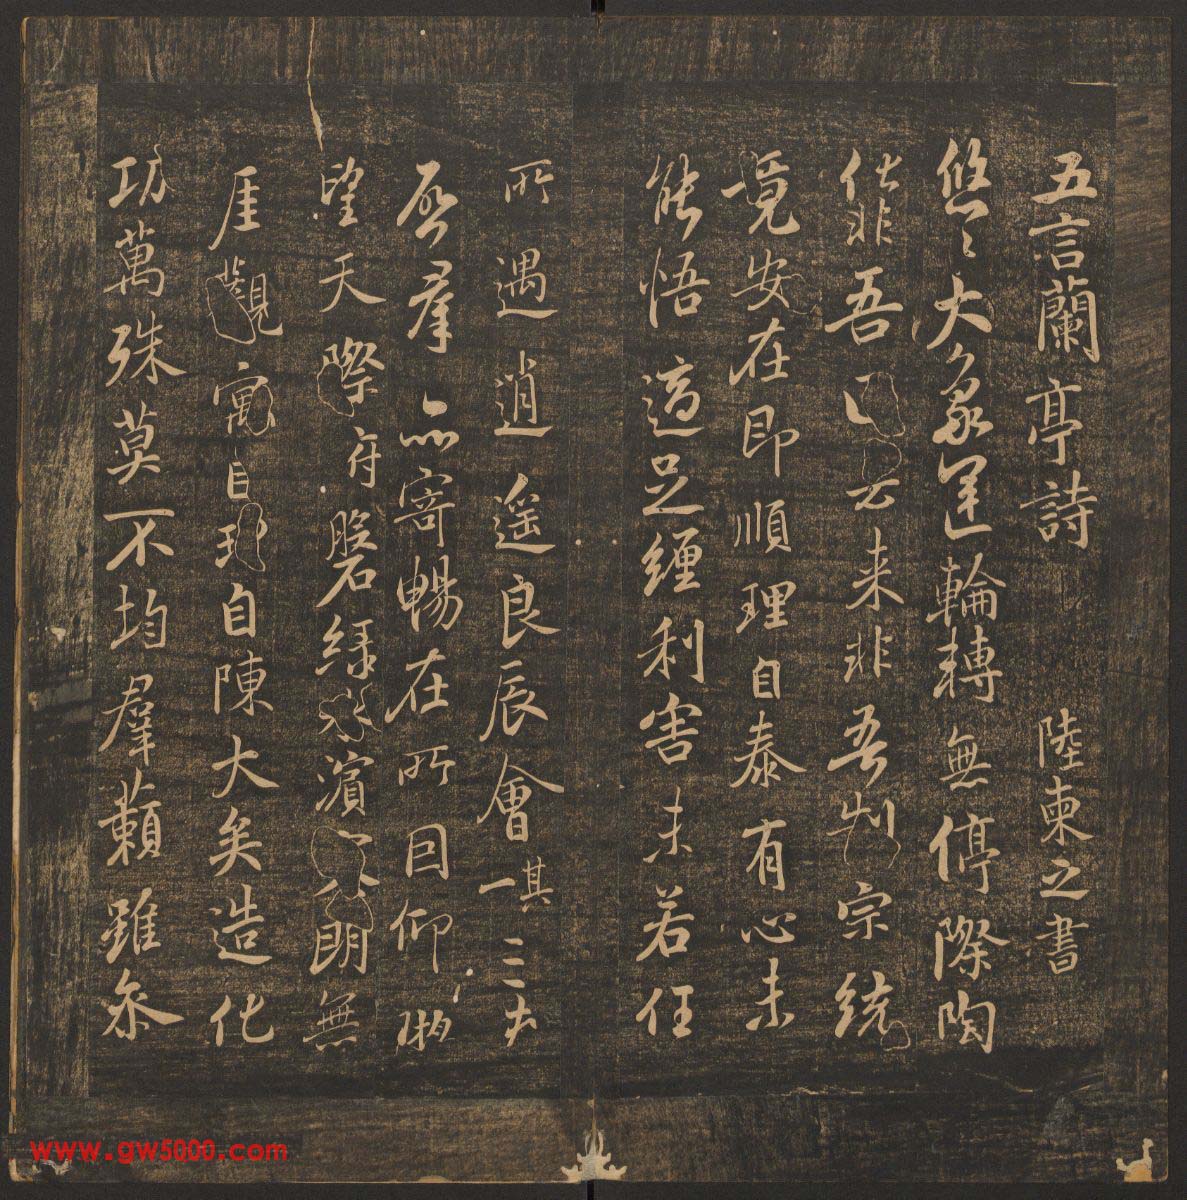 五言蘭亭詩 陸柬之書
悠〻大象運輪轉無停際陶
化非吾已去来非吾制宗統
竟安在即順理自泰有心未
能悟適足纏利害未若任
所遇逍遥良辰會 其一 三春
啓羣品寄暢在所因仰眺
望天際俯磐緑水濱朗無
厓觀寓自理自陳大矣造化
功萬殊莫不均羣籟雖参
www.gw5000.com